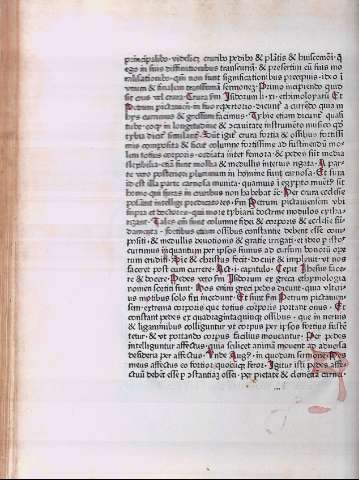 principalibo · videlicet cruribo pedibo & plātis & huiuscemōi · q
ego in suis diffinitionibus transcurrā · & presertim cū suis mo
ralisationibo · qm̄ non sunt significationibus precipuis · ideo ī
vnum & finalem transsumā sermonez · Primo incipiendo quid
sit crus vel crura · Crura scm̄ Isidorum li · xi · ethimologiarū Et
Petrum pictauien̄ in suo repertorio · dicunt a currēdo quia in
bys currimus & gressum facimus · Tybie etiam dicunt̄ quasi
tube · eo q in longitudine & cauitate instrumēto musico qd
tybia dicit̄ similant̄ · Sūt igit̄ crura fortia & ossibus fortissi
mis composita & sicut columne fortissime ad sustinendū mo
lem totius corporis · ordinata inter femora · & pedes sūt media
 cum sint mollia & medullis interius rigata · A par
te vero posteriori pluruimum in homine sunt carnosa · Et sura
id est illa parte carnosa munita · quamuis i egypto multi ho
homines qui suras in cruribus non habebāt · Per crura ecclesie
possunt intelligi predicatores · scm̄ Petrum pictauiensem vbi
supra et doctores · qui more tybiarū doctrine modulos exthra
unt · Tales em̄ sunt columne fidei & corporis & ecclesie fū
damenta · fortibus etiam ossibus constantie debent esse com
positi · & medullis deuotionis & gratie irrigati · et ideo p istos
currimus inquantum per ipsos summus ad cursum bonorū ope
rum eruditi · Sic & christus fecit · docuit & impleuit vt nos
faceret post eum currere · Act · i · capitulo · Cepit Ihesus face
re & docere · Pedes vero scm̄ Isidorum ex greca ethymologia
nomen sortiti sunt · Nos enim greci pedes dicunt · qui alteri
us motibus solo fixi incedunt · Et sunt scm̄ Petrum pictauien
sem · extrema corporis que totius corporis portant onus · Et
constant pedes ex quadragintaquinq ossibus · que in neruis
& ligaminibus colliguntur vt corpus per ipsos fortius susten
tetur · & vt portando corpus facilius moueantur · Per pedes
intelliguntur affectus · quia scilicet animā mouent ad diuersa
desideria per affectus · Unde Augꝰ · in quodam sermone · Pes
meus affectus eo fertor quocūq feror · Igitur isti pedes affe
ctuū debēt esse p constantiaz ossei · per pietatē & clementiā carno